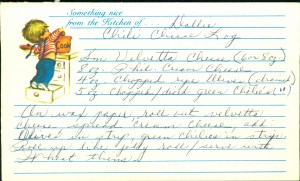 Something nice
from the Kitchen of... Dallie
Chili Cheese Log
1 sm Velvetta Cheese (6 or 8 oz)
8 oz. Phil. Cream Cheese
4 oz Chopped Olives (drained)
5 oz. Chopped/mild green Chilies ( " )
On wax paper, roll out velvetta
cheese, spread cream cheese, add
olives in strip, green chilies in strip.
Roll up like jelly roll / serve with
Wheat thins.